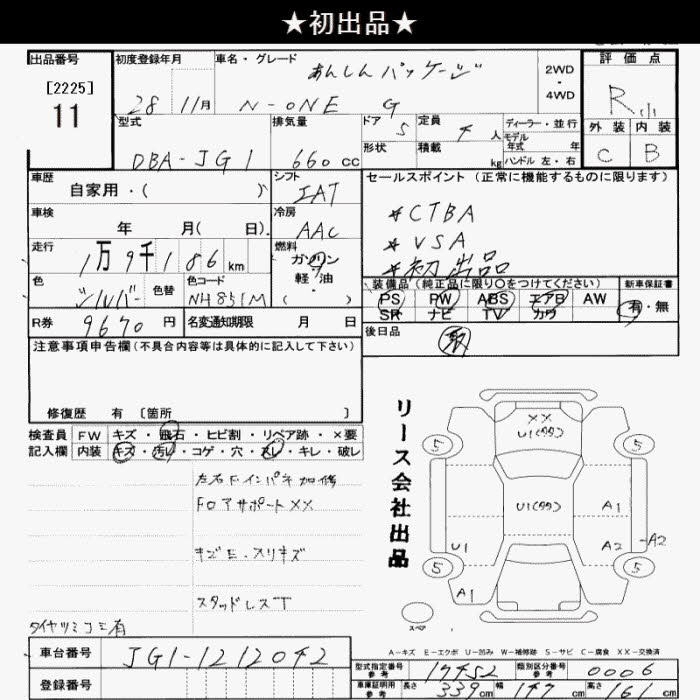 ★初出品★
出品番号
[2225]
11
初度登録年月
28 11月
車名・グレード
あんしんパッケージ
N-ONE G
2WD
・
4WD
評価点
R
外装 内装
C B
型式
DBA-JG1
排気量
660 cc
ドア 5
形状
定員 4 人
積載 kg
ディーラー・並行
モデル
年式 年
ハンドル 左・右
車歴
自家用・( )
シフト
IAT
セールスポイント(正常に機能するものに限ります)
*CTBA
*VSA
*初出品
車検
年 月( 日)
冷房
AAC
走行
1万9千186km
燃料
ガソリン
軽・油
( )
色
シルバー
色替
色コード
NH851M
装備品(純正品に限り○をつけてください)
PS PW ABS エアB AW
SR ナビ TV カワ
新車保証書
有・無
R券 9670 円
名変通知期限 月 日
後日品
注意事項申告欄(不具合内容等は具体的に記入して下さい)
修復歴 有 〔箇所 〕
検査員
記入欄
FW キズ・飛石・ヒビ割・リペア跡・×要
内装 キズ・汚レ・コゲ・穴・スレ・キレ・破レ
左右Fインパネ加修
FロアサポートXX
キズE・スリキズ
スタッドレスT
タイヤツミコミ有
リース会社出品
XX
U1(99)
5 5
U1(99)
A1
U1
A2 -A2
5 5
A1
スペア
A-キズ E-エクボ U-凹み W-補修跡 S-サビ C-腐食 XX-交換済
車台番号 JG1-1212042
登録番号
型式指定番号
参考
17452
類別区分番号
参考
0006
車庫証明用
参考
長さ 339cm 幅 147cm 高さ 161cm